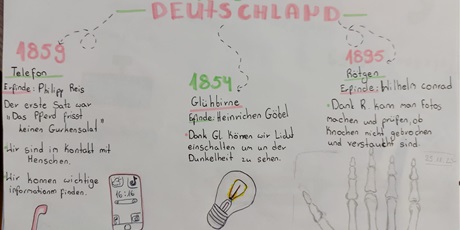 DEUTSCHLAND
1859
Telefon
Erfinde: Philipp Reis
Der erste Satz war
"Das Pferd frisst
keinen Gurkensalat"
Wir sind in Kontakt mit
Menschen.
Wir können wichtige
informationen finden.
16:16
1854
Glühbirne
Erfinde: Heinrichen Göbel
Dank Gl. können wir Licht
einschalten um un der
Dunkelheit zu sehen.
1895
Rötgen
Erfinde: Wilhelm conrad
Dank R. kann man Fotos
machen und prüfen, ob
Knochen nicht gebrochen
und verstaucht sind.